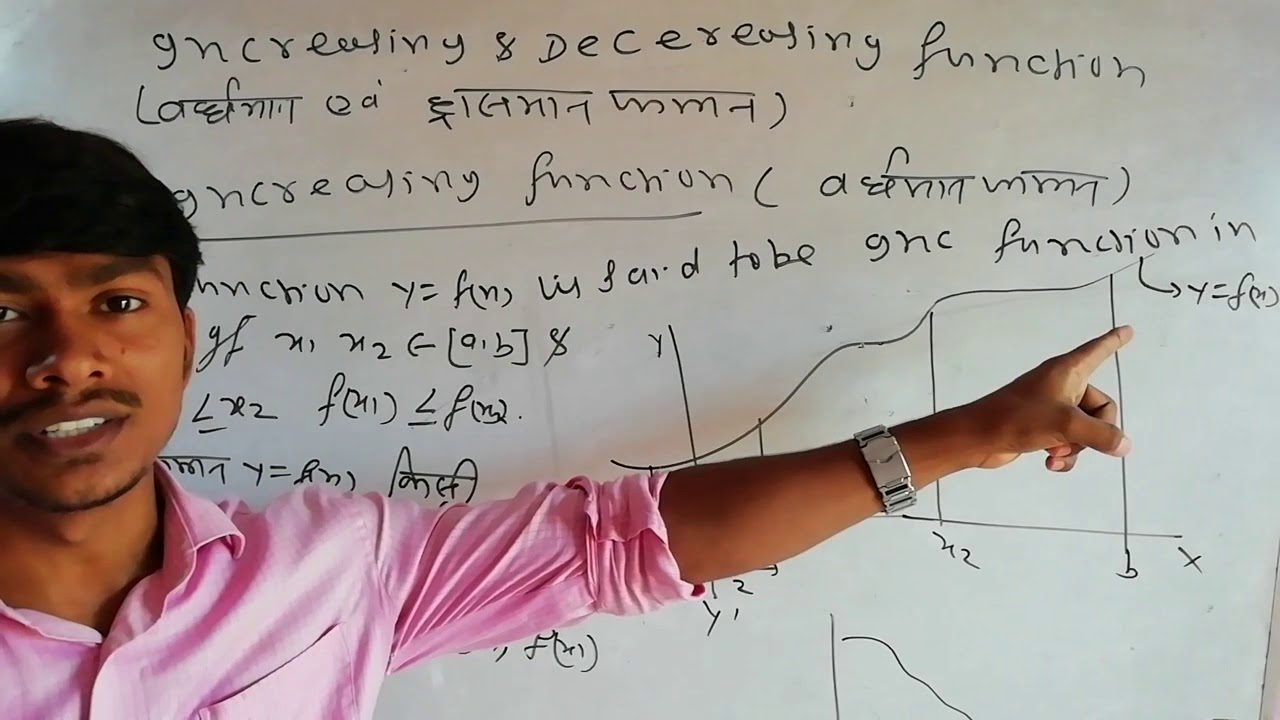 Increasing & Decereasing function
(वर्द्धमान एवं ह्रासमान फलन)
Increasing function ( वर्धमान फलन )
function y = f(x) is said to be Inc function in
If x1 x2 ∈ [a,b] &
≤ x2 f(x1) ≤ f(x2).
फलन y = f(x) किसी
f(x1)
Y
y = f(x)
x2
b
X
Y'